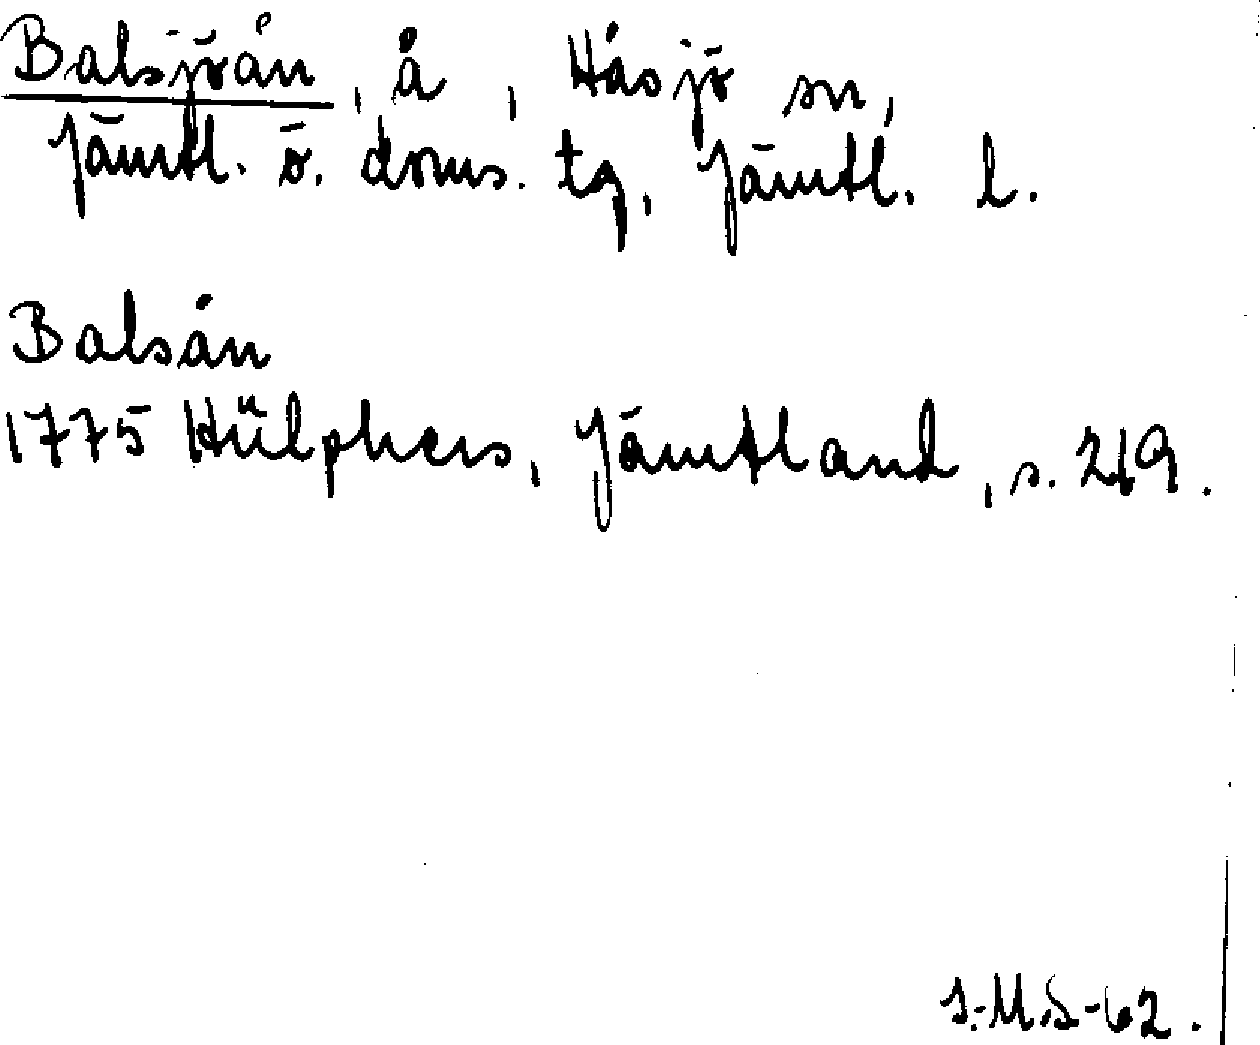 Balsjöån, å, Håsjö sn,
Jämtl. ö. doms. tg, Jämtl. l.
Balsån
1775 Hülphers, Jämtland, s. 219.
I.-M.S-62.